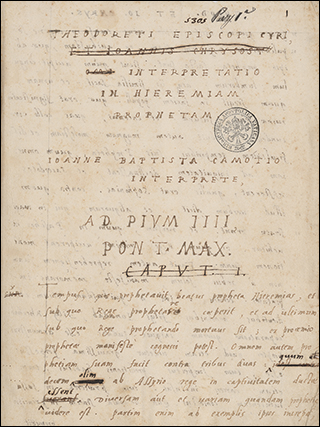 5305 Pars 1ª 1
THEODORETI EPISCOPI CYRI
ET IOANNIS CHRYSOST
INTERPRETATIO
IN HIEREMIAM
PROPHETAM
IOANNE BAPTISTA CAMOTIO
INTERPRETE
AD PIVM IIII
PONT. MAX.
CAPVT. I.
Tempus, quo prophetavit beatus propheta Hieremias, et
sub quo Rege prophetare coeperit, et ad ultimum
sub quo Rege prophetando mortuus sit, ex proemio
prophetae manifesto cognosci potest. Omnem autem pro
phetiam suam facit contra tribus duas quum
decem olim ab Assyrio rege in captivitatem ductae
essent
universam aut, et variam quandam prophetia
videre est. partim enim ab exemplis ipse